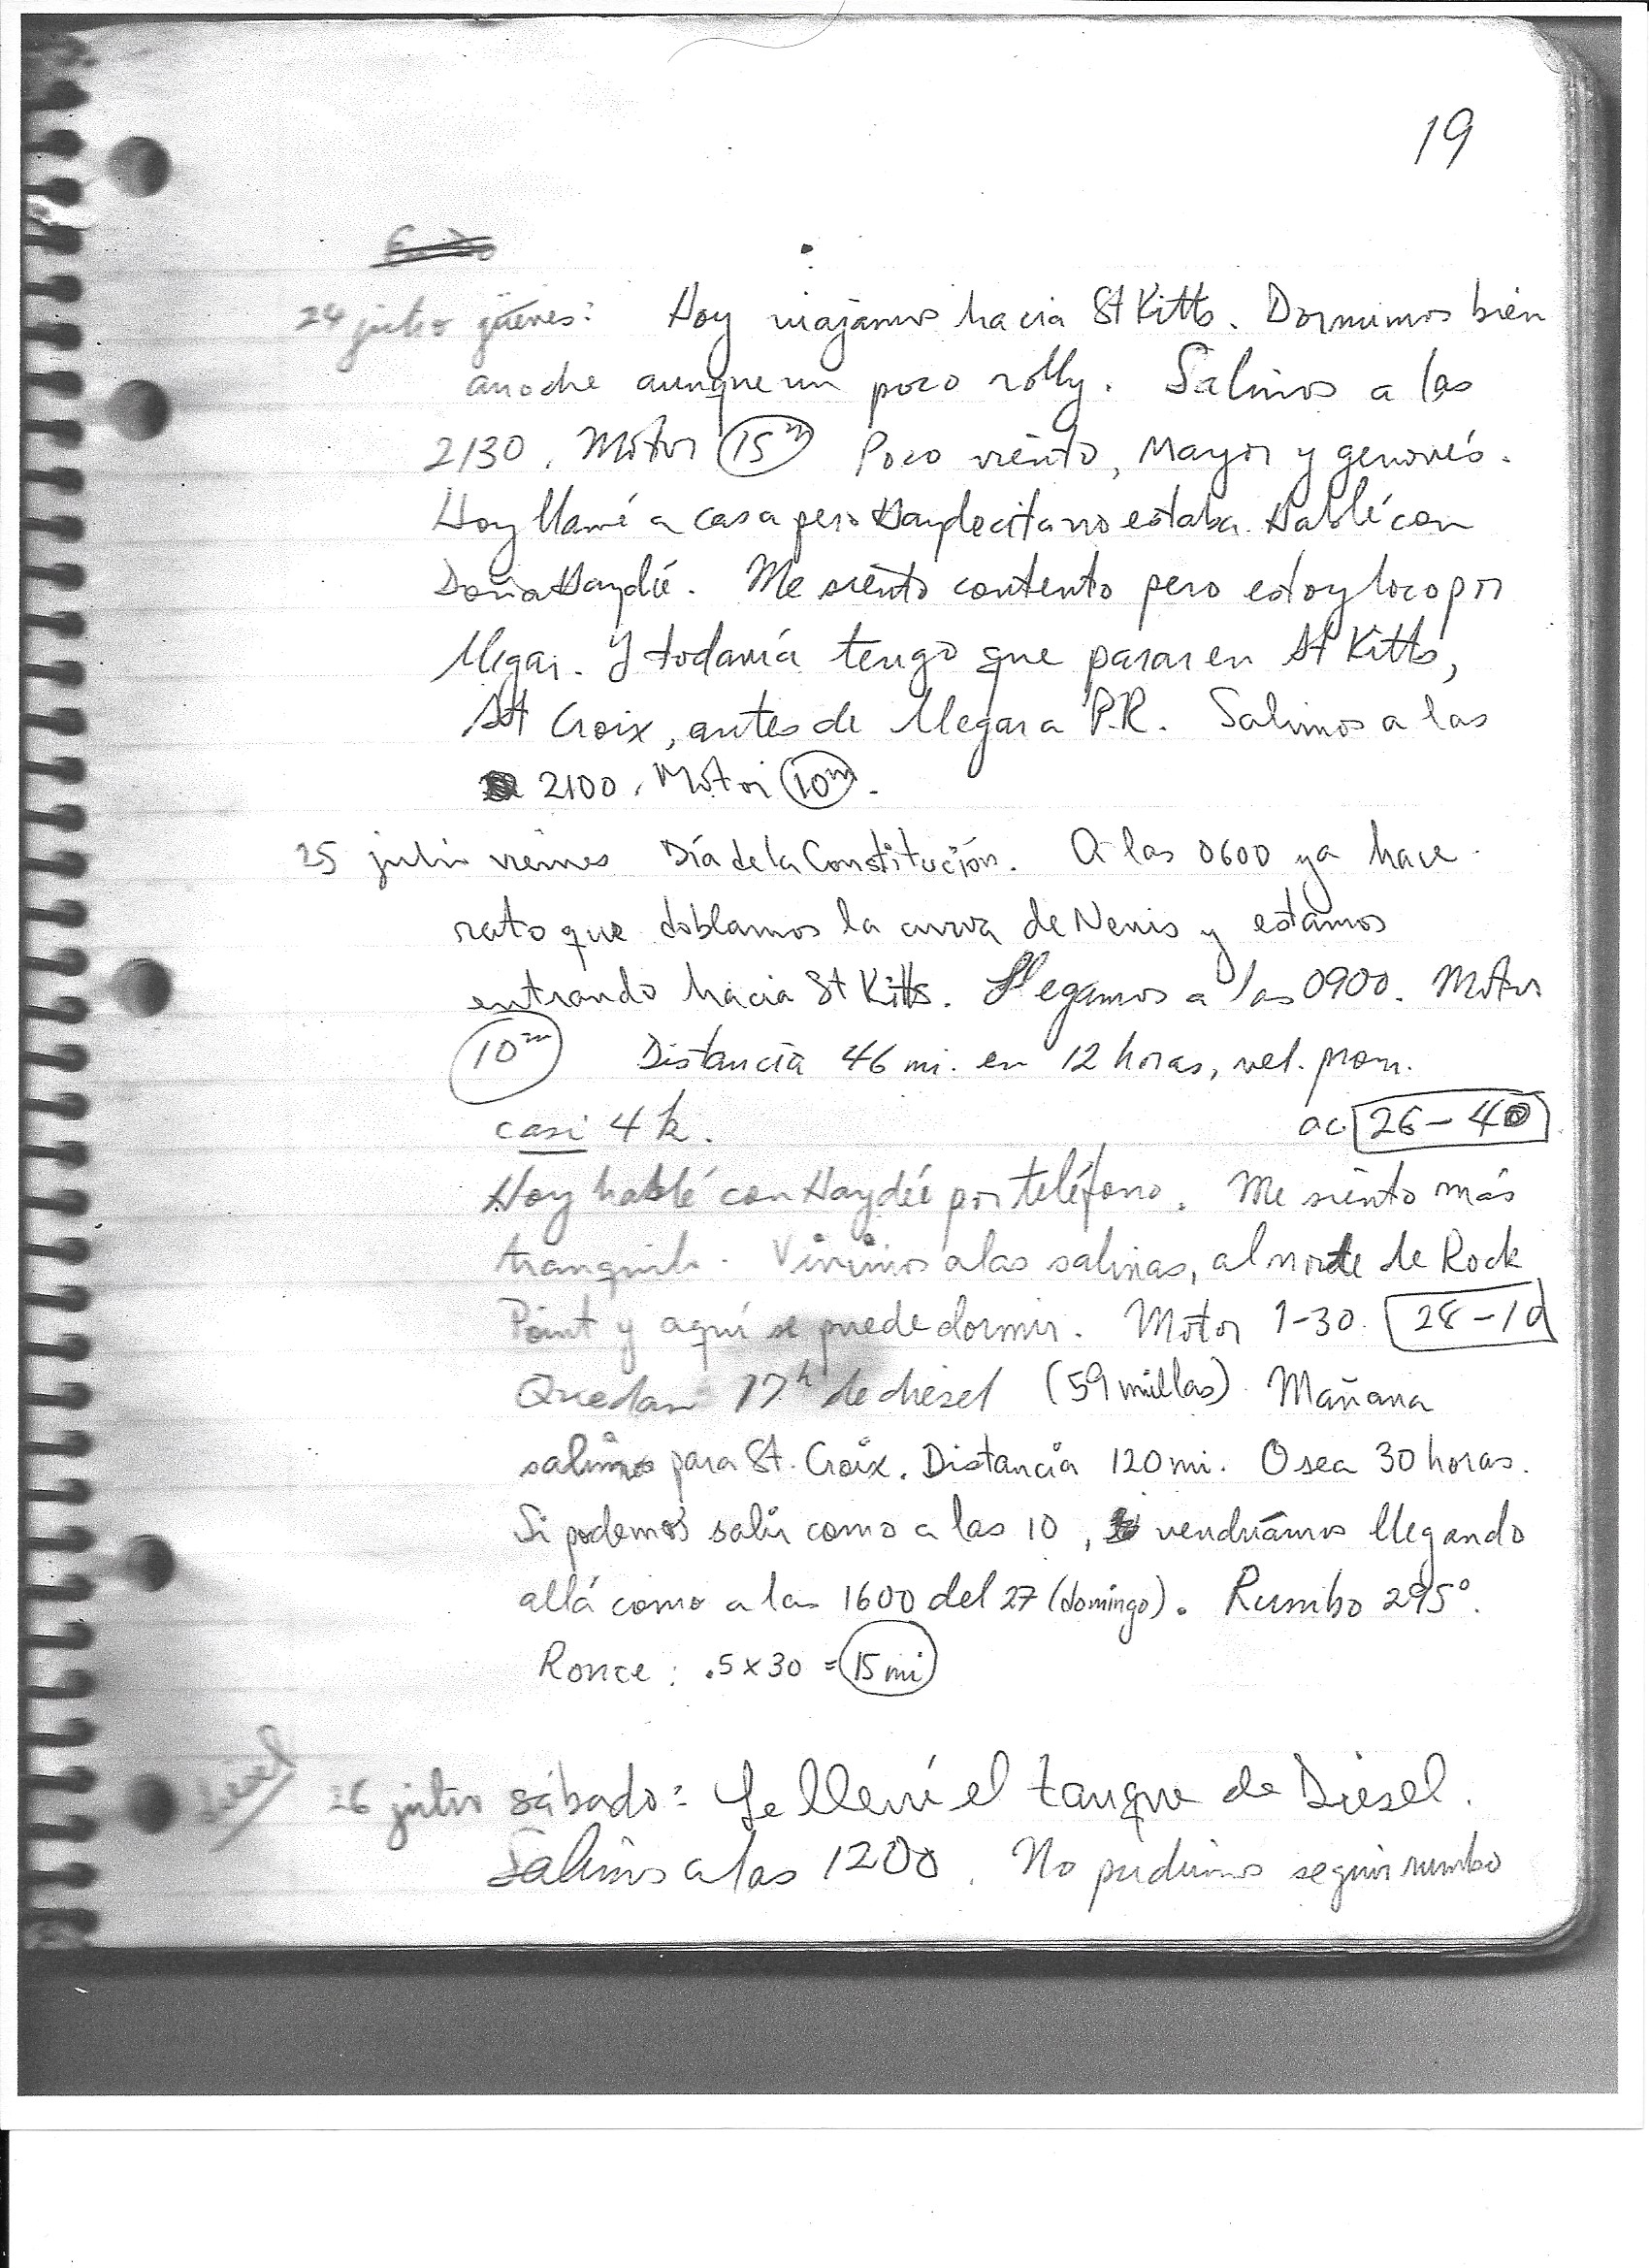 19
24 julio jueves: Hoy viajamos hacia St Kitts. Dormimos bien
anoche aunque un poco rolly. Salimos a las
2130. Motor 15m Poco viento, Mayor y genovés.
Hoy llamé a casa pero Haydecita no estaba. Hablé con
Doña Haydée. Me siento contento pero estoy loco por
llegar. Y todavía tengo que parar en St Kitts,
St Croix, antes de llegar a P.R. Salimos a las
2100. Motor 10m.
25 julio viernes Día de la Constitución. A las 0600 ya hace
rato que doblamos la curva de Nevis y estamos
entrando hacia St Kitts. Llegamos a las 0900. Motor
10m Distancia 46 mi. en 12 horas, vel. prom.
casi 4 k. ac 26-40
Hoy hablé con Haydée por teléfono. Me siento más
tranquilo. Vinimos a las salinas, al norte de Rock
Point y aquí se puede dormir. Motor 1-30. 28-10
Quedan 17h de diesel (59 millas). Mañana
salimos para St. Croix. Distancia 120 mi. O sea 30 horas.
Si podemos salir como a las 10, vendríamos llegando
allá como a las 1600 del 27 (domingo). Rumbo 295°.
Ronce: .5 x 30 = 15 mi
diesel
26 julio sábado: Le llené el tanque de Diesel.
Salimos a las 1200. No pudimos seguir rumbo